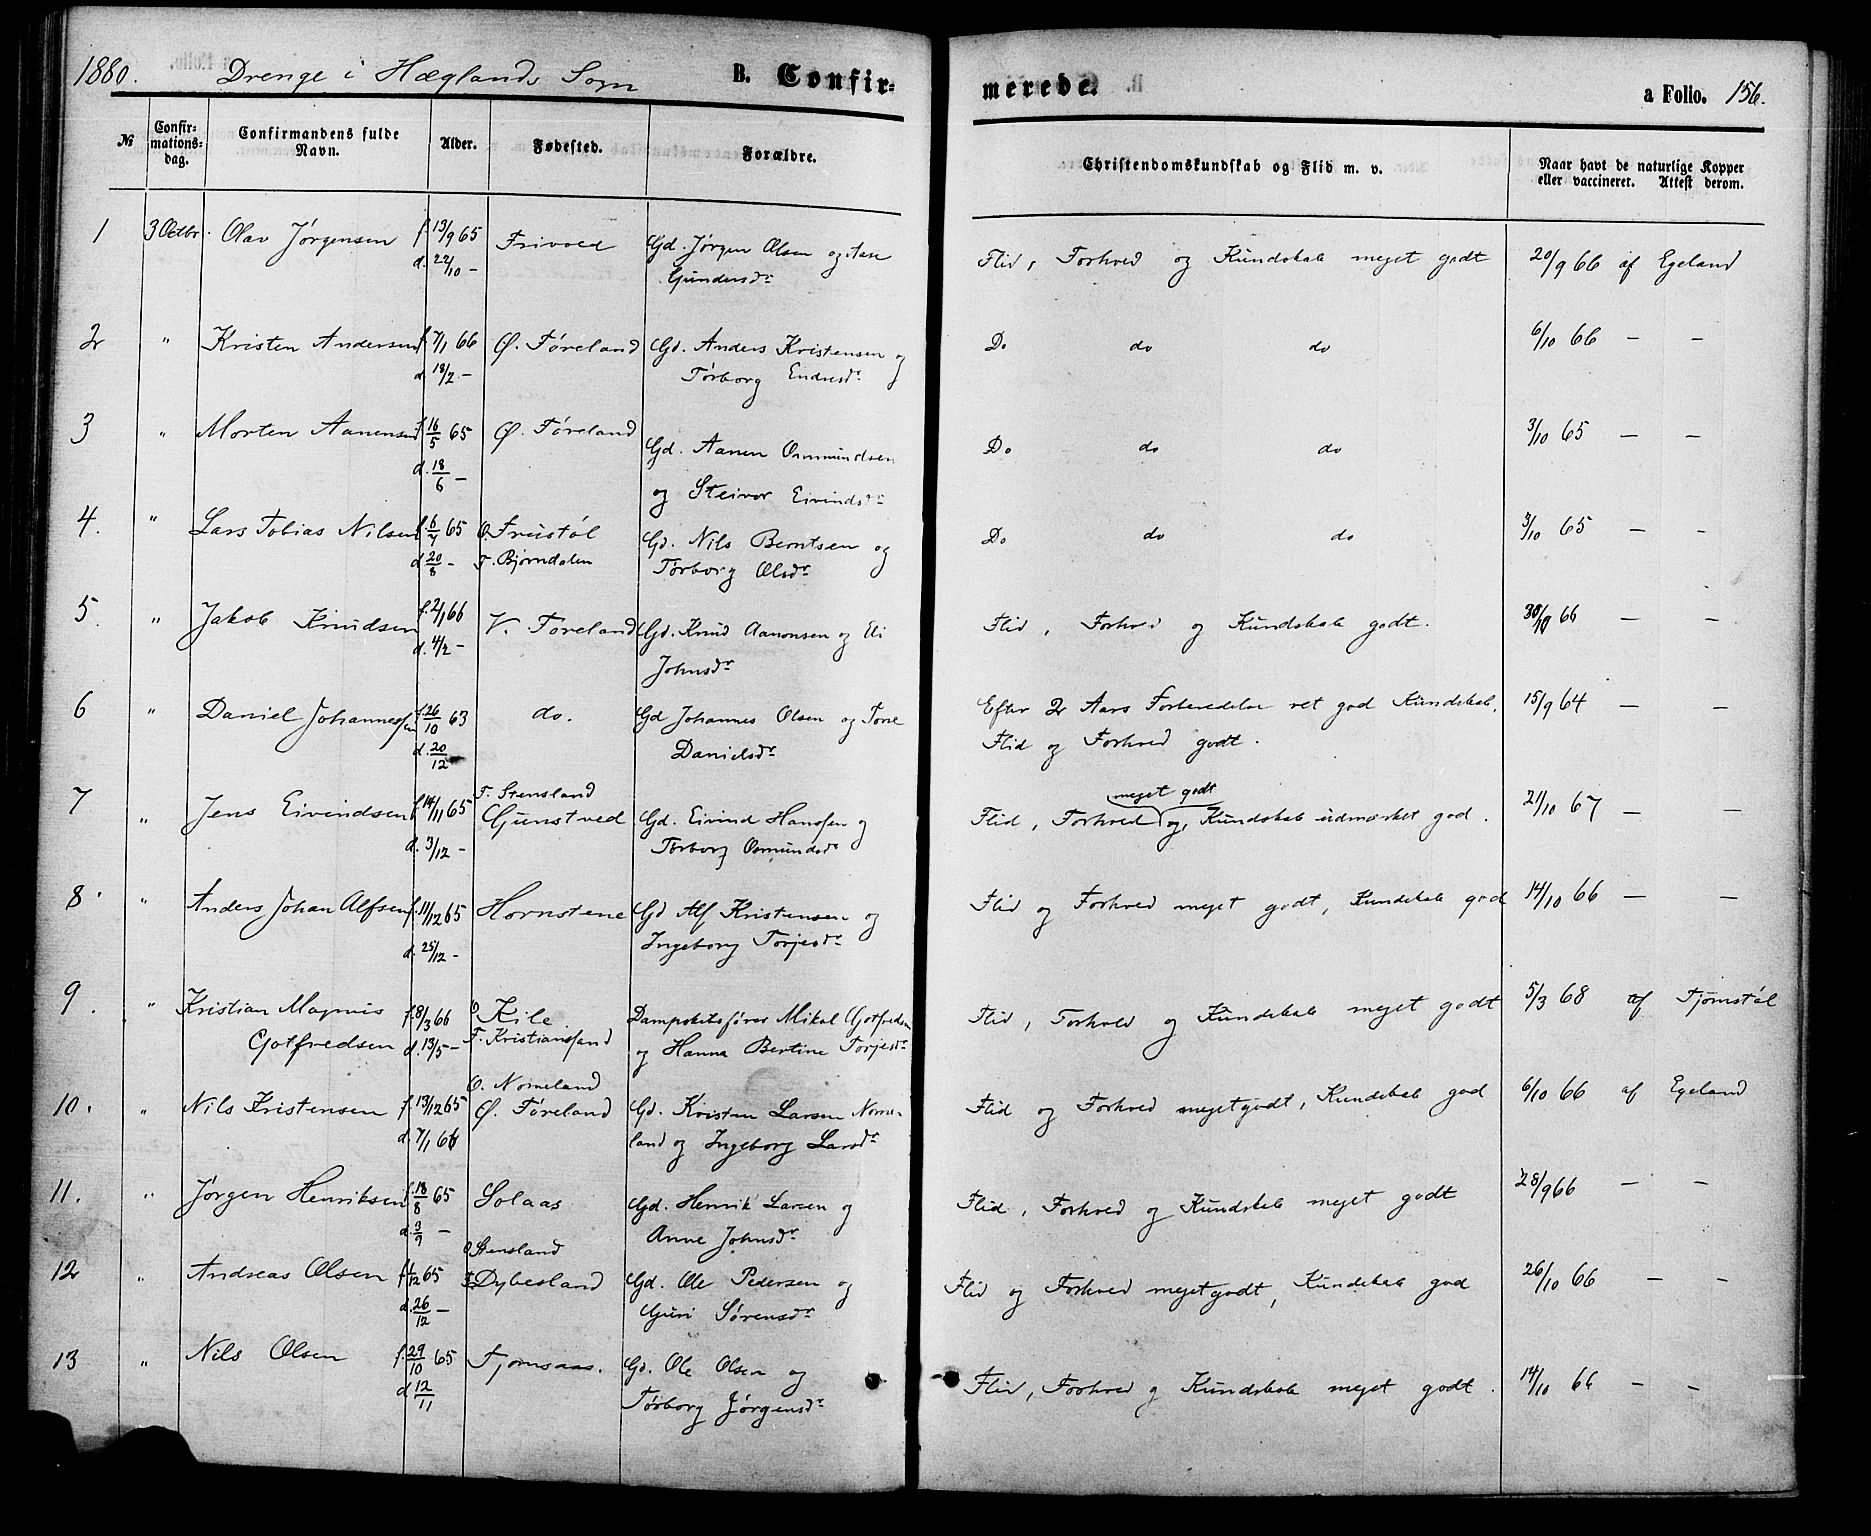 1880. Drenge i Hæglands Sogn B. Confirmerede. a Folio. 156.
№ Confirmationsdag. Confirmandens fulde Navn. Alder. Fødested. Forældre. Christendomskundskab og Flid m. v. Naar havt de naturlige Kopper eller vaccineret. Attest derom.
1 3 Octbr. Olav Jørgensen f. 13/9 65 Frivold Gd. Jørgen Olsen og Aase Flid, Forhold og Kundskab meget godt 20/9 66 af Egeland
d. 22/10 – Gundersdr
2 " Kristen Andersen f. 7/1 66 Ø. Føreland Gd. Anders Kristensen og Do do do 6/10 66 – –
d. 18/2 – Torborg Endresdr
3 " Morten Aanensen f. 16/5 65 Ø. Føreland Gd. Aanen Osmundsen Do do do 3/10 65 – –
d. 18/6 – og Steivor Eivindsdr
4. " Lars Tobias Nilsen f. 6/7 65 O. Frustøl Gd. Nils Berntsen og Do do do 3/10 65 – –
d. 20/8 – F. Bjørndalen Torborg Olsdr
5. " Jakob Knudsen f. 2/1 66 V. Føreland Gd. Knud Aanonsen og Eli Flid, Forhold og Kundskab godt. 66 – –
d. 4/2 – Johnsdr
6 " Daniel Johannessen f. 26/10 63 do. Gd Johannes Olsen og Tone Efter 2 Aars Forberedelse ret god Kundskab, 15/9 64 – –
d. 20/12 Danielsdr Flid og Forhold godt.
7 " Jens Eivindsen f. 14/11 65 F. Stensland meget godt
Gunstved Gd. Eivind Hanssen og Flid, Forhold og, Kundskab udmærket god. 21/10 67 – –
d. 3/12 – Torborg Osmundsdr
8 " Anders Johan Alfsen f. 11/12 65 Hornstene Gd Alf Kristensen og Flid og Forhold meget godt, Kundskab god 14/10 66 – –
d. 25/12 – Ingeborg Torjesdr
9. " Kristian Magnus f. 8/3 66 O. Kile Dampskibsfører Mikal Gotfredsen Flid, Forhold og Kundskab meget godt 5/3 68 af Tjomstøl
Gotfredsen d. 13/5 – F. Kristianssand og Hanna Bertine Torjesdr
O. Nomeland
10. " Nils Kristensen f. 13/12 65 Ø. Føreland Gd. Kristen Larsen Nome- Flid og Forhold meget godt, Kundskab god 6/10 66 af Egeland
d. 7/1 66 land og Ingeborg Larsdr
11. " Jørgen Henriksen f. 18/8 65 Solaas Gd. Henrik Larsen og Flid, Forhold og Kundskab meget godt 28/9 66 – –
d. 3/9 – Anne Johnsdr
O. Stensland
12 " Andreas Olsen f. 1/12 65 F. Dybesland Gd. Ole Pedersen og Flid og Forhold meget godt, Kundskab god 26/10 66 – –
d. 26/12 – Guri Sørensdr
13 " Nils Olsen f. 29/10 65 Tjomsaas. Gd. Ole Olsen og Flid, Forhold og Kundskab meget godt. 14/10 66 – –
d 12/11 Torborg Jørgensdr